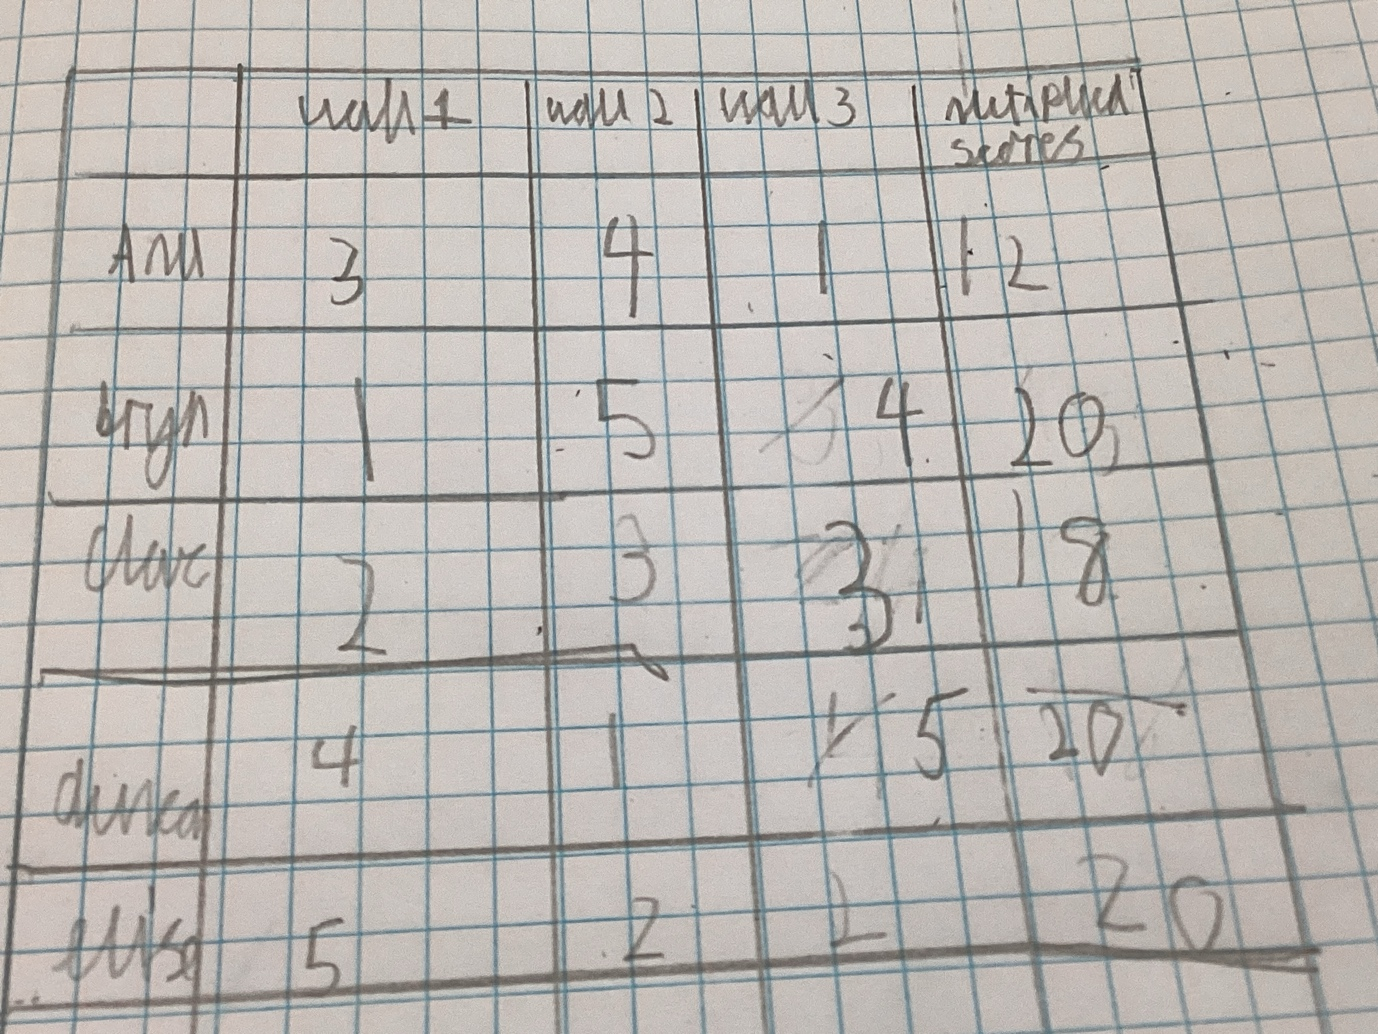 wall 1 wall 2 wall 3 Multiplied
scores
Ann 3 4 1 12
bryn 1 5 4 20
Clare 2 3 3 18
4 1 5 20
5 2 2 20